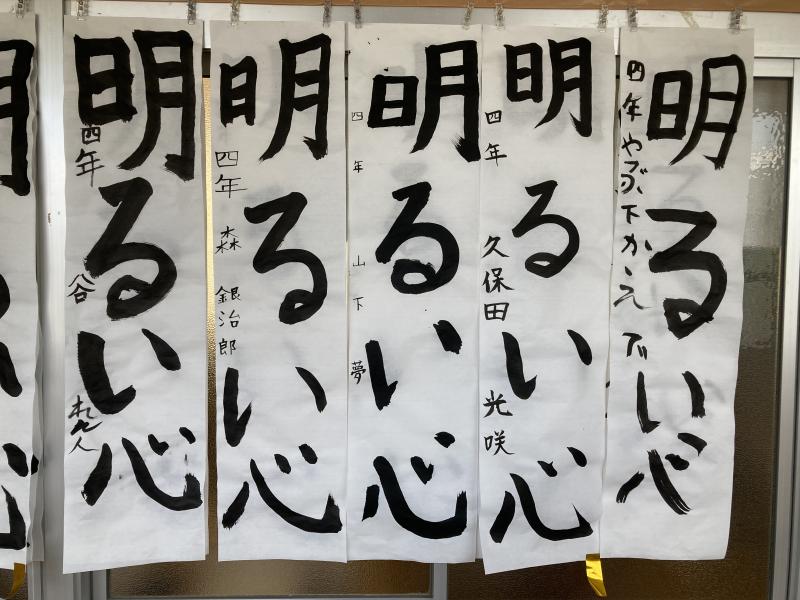 明るい心
四年 やぶ下 かえで
明るい心
四年 久保田 光咲
明るい心
四年 山下 夢
明るい心
四年 森 銀治郎
明るい心
四年 谷